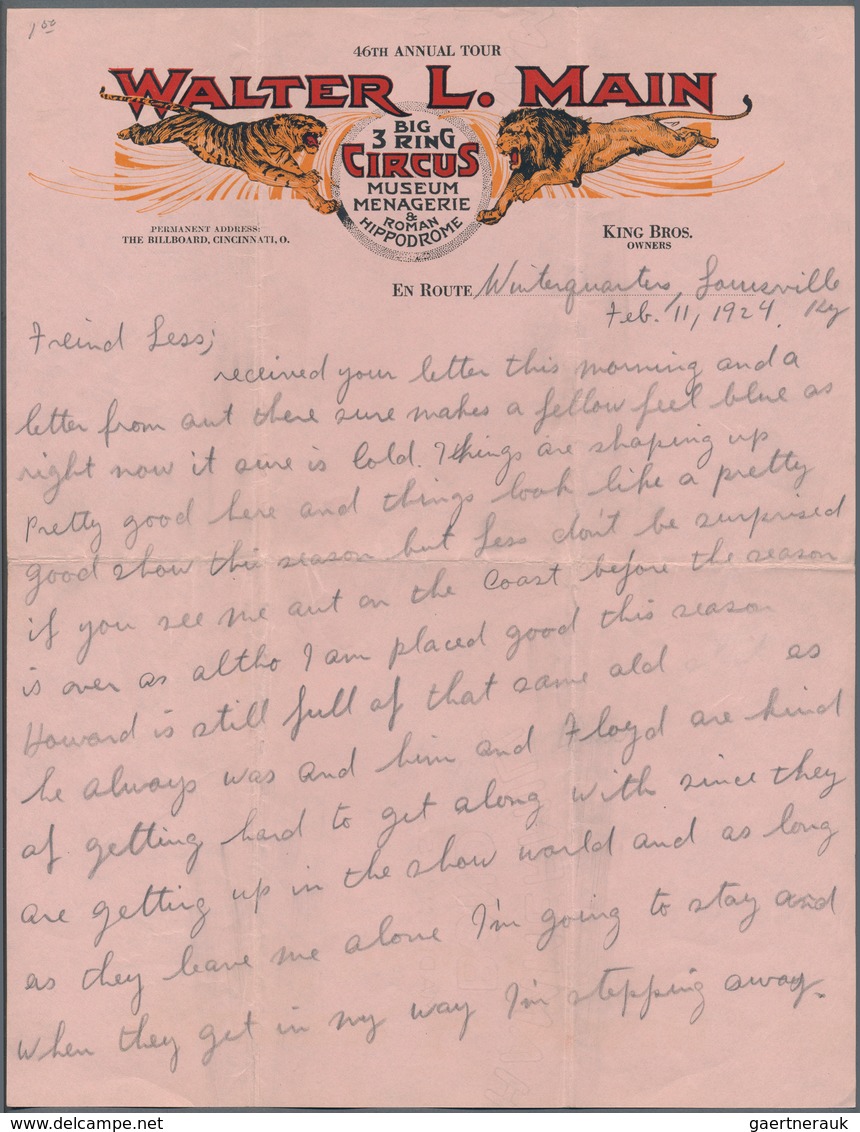 1 00
46TH ANNUAL TOUR
WALTER L. MAIN
BIG
3 RING
CIRCUS
MUSEUM
MENAGERIE
&
ROMAN
HIPPODROME
PERMANENT ADDRESS:
THE BILLBOARD, CINCINNATI, O.
KING BROS.
OWNERS
EN ROUTE Winterquarters, Louisville
Feb. 11, 1924. Ky
Freind Less;
received your letter this morning and a
letter from out there sure makes a fellow feel blue as
right now it sure is Cold. Things are shaping up
pretty good here and things look like a pretty
good show this season but Less don't be surprised
if you see me out on the Coast before the season
is over as altho I am placed good this season
Howard is still full of that same old as
he always was and him and Floyd are kind
of getting hard to get along with since they
are getting up in the show world and as long
as they leave me alone I'm going to stay and
when they get in my way I'm stepping away.
www.delcampe.net
gaertnerauk